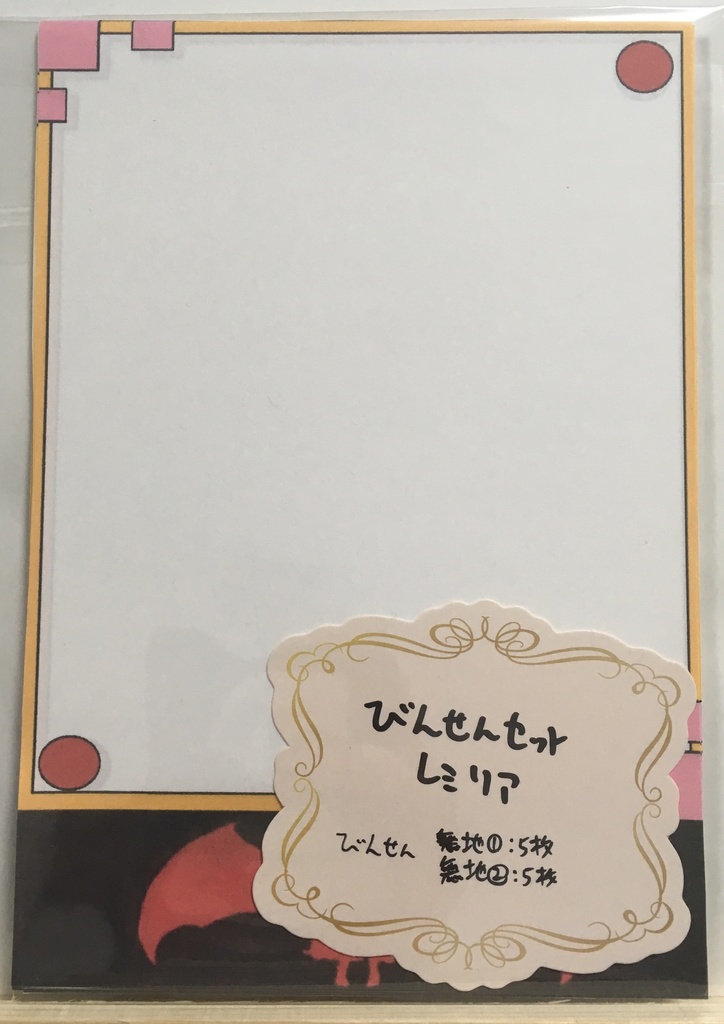 びんせんセット
レミリア
びんせん 無地①:5枚
無地②:5枚